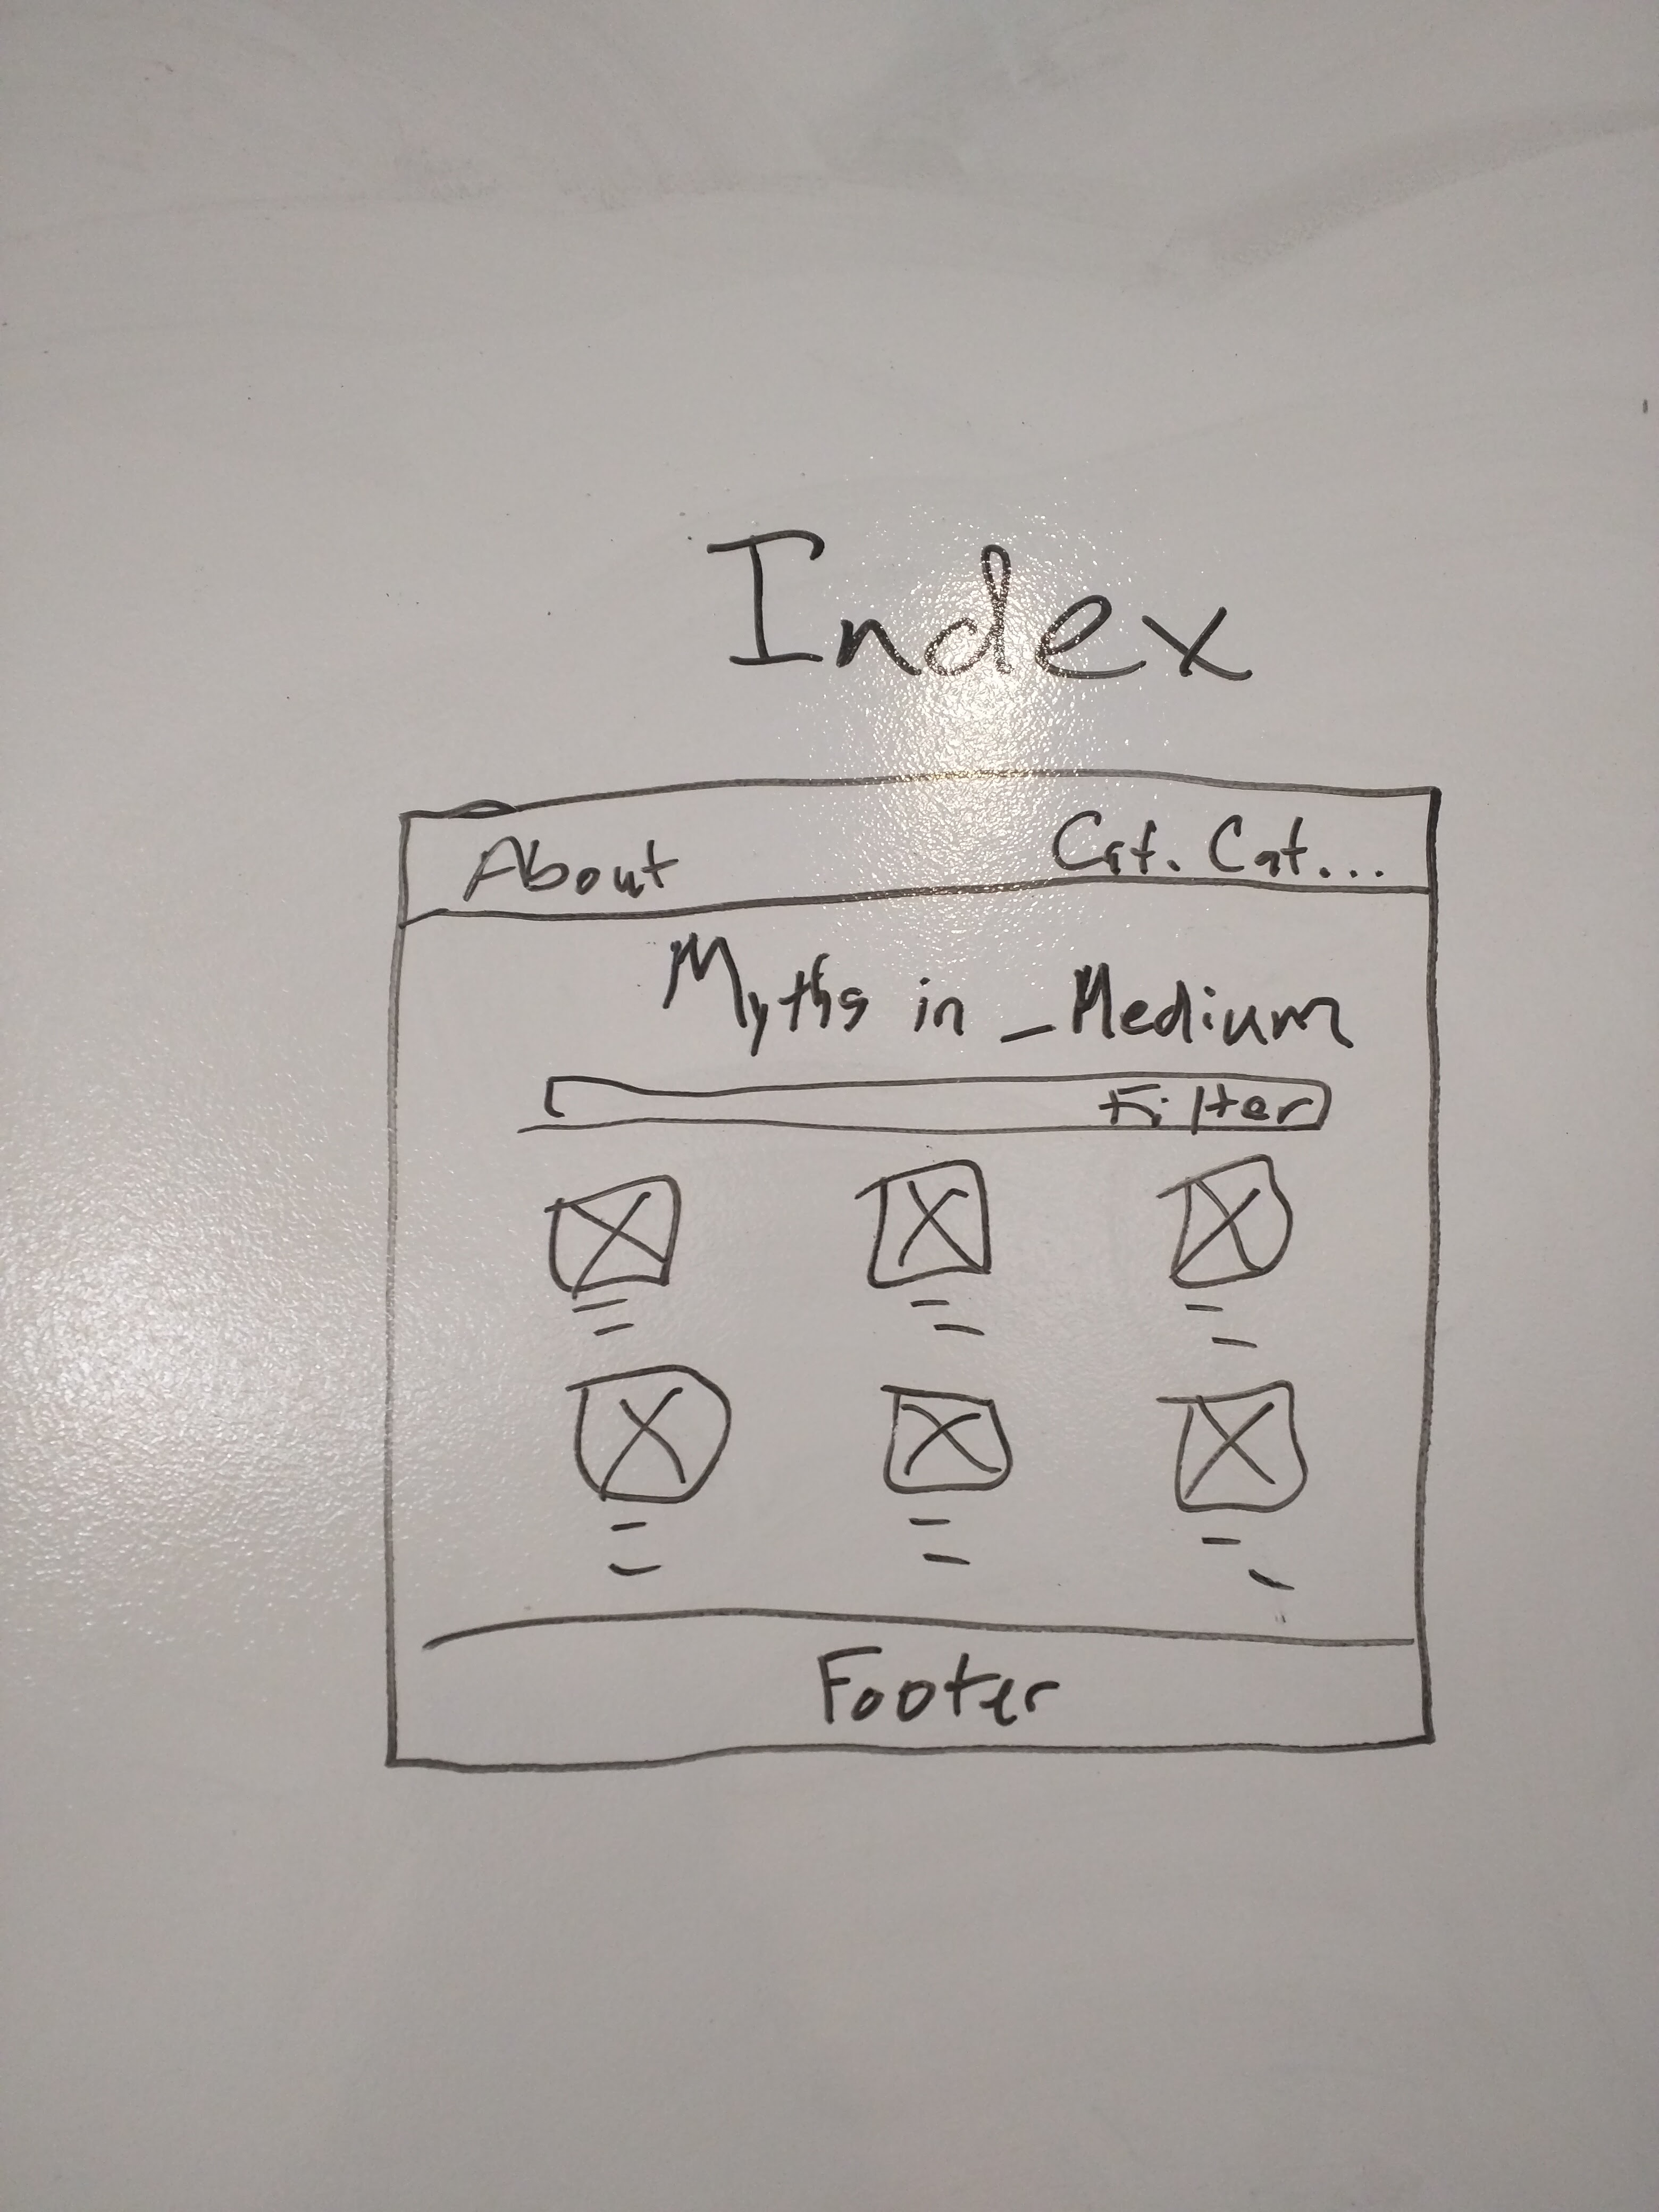 Index
About Cat. Cat...
Myths in _Medium
Filter
Footer